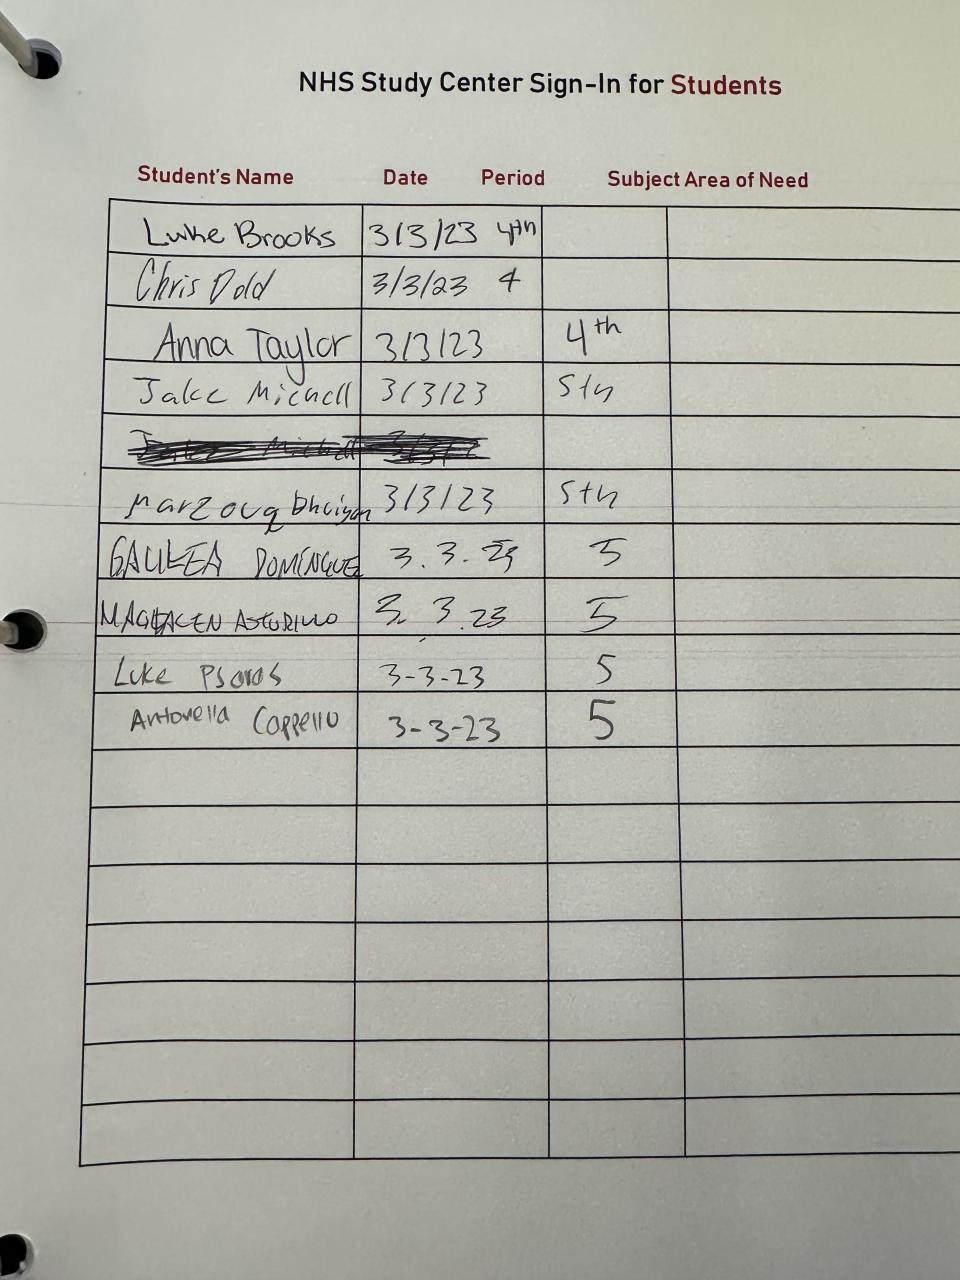 NHS Study Center Sign-In for Students
Student's Name Date Period Subject Area of Need
Luke Brooks 3/3/23 4th
Chris Dold 3/3/23 4
Anna Taylor 3/3/23 4th
Jake Michell 3/3/23 5th
Marzouq 3/3/23 5th
GALILEA DOMÍNGUEZ 3.3.23 5
3.3.23 5
Luke Psaras 3-3-23 5
Antonella Cappello 3-3-23 5